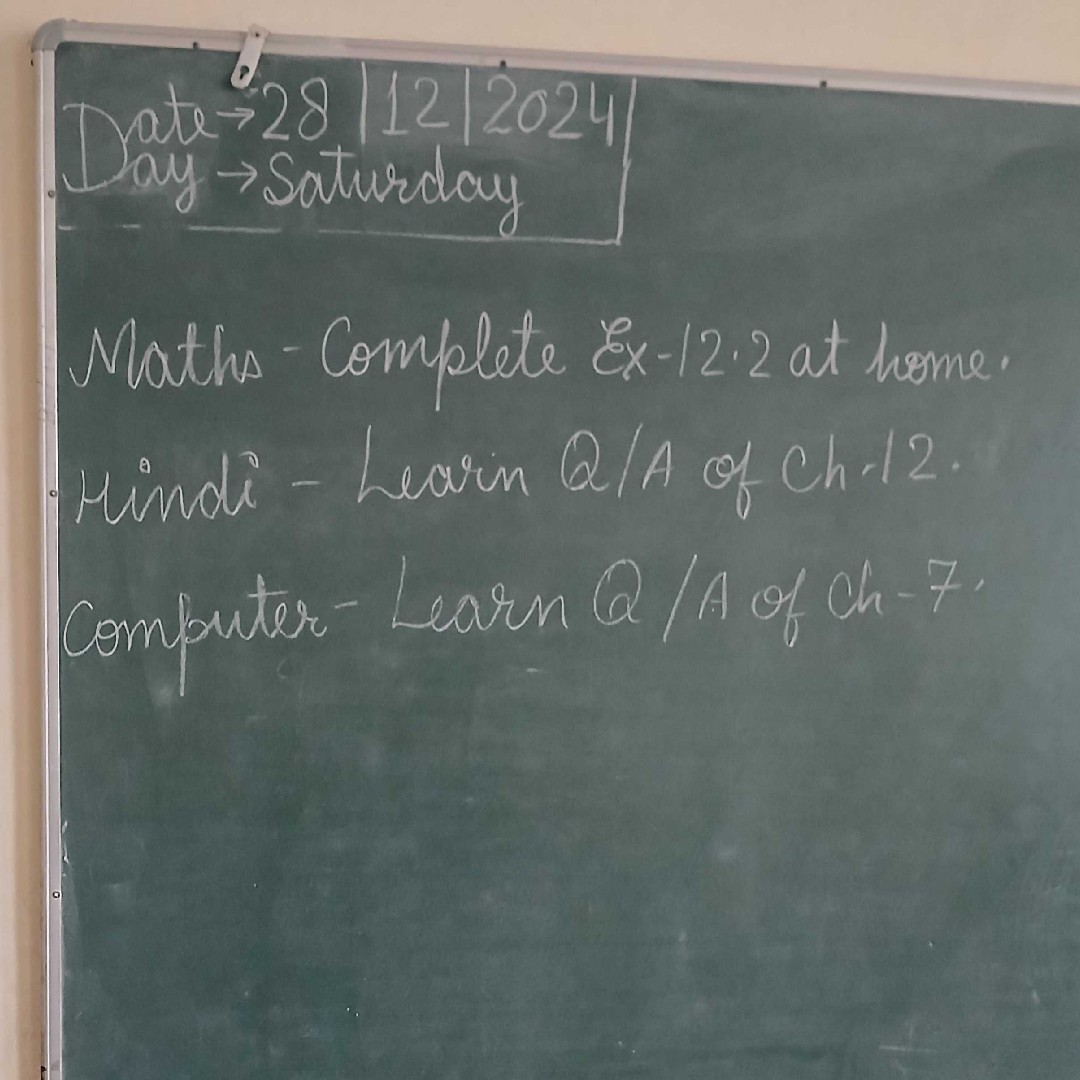 Date→28|12|2024
Day→Saturday
Maths - Complete Ex-12.2 at home.
Hindi - Learn Q/A of Ch-12.
Computer - Learn Q/A of Ch-7.